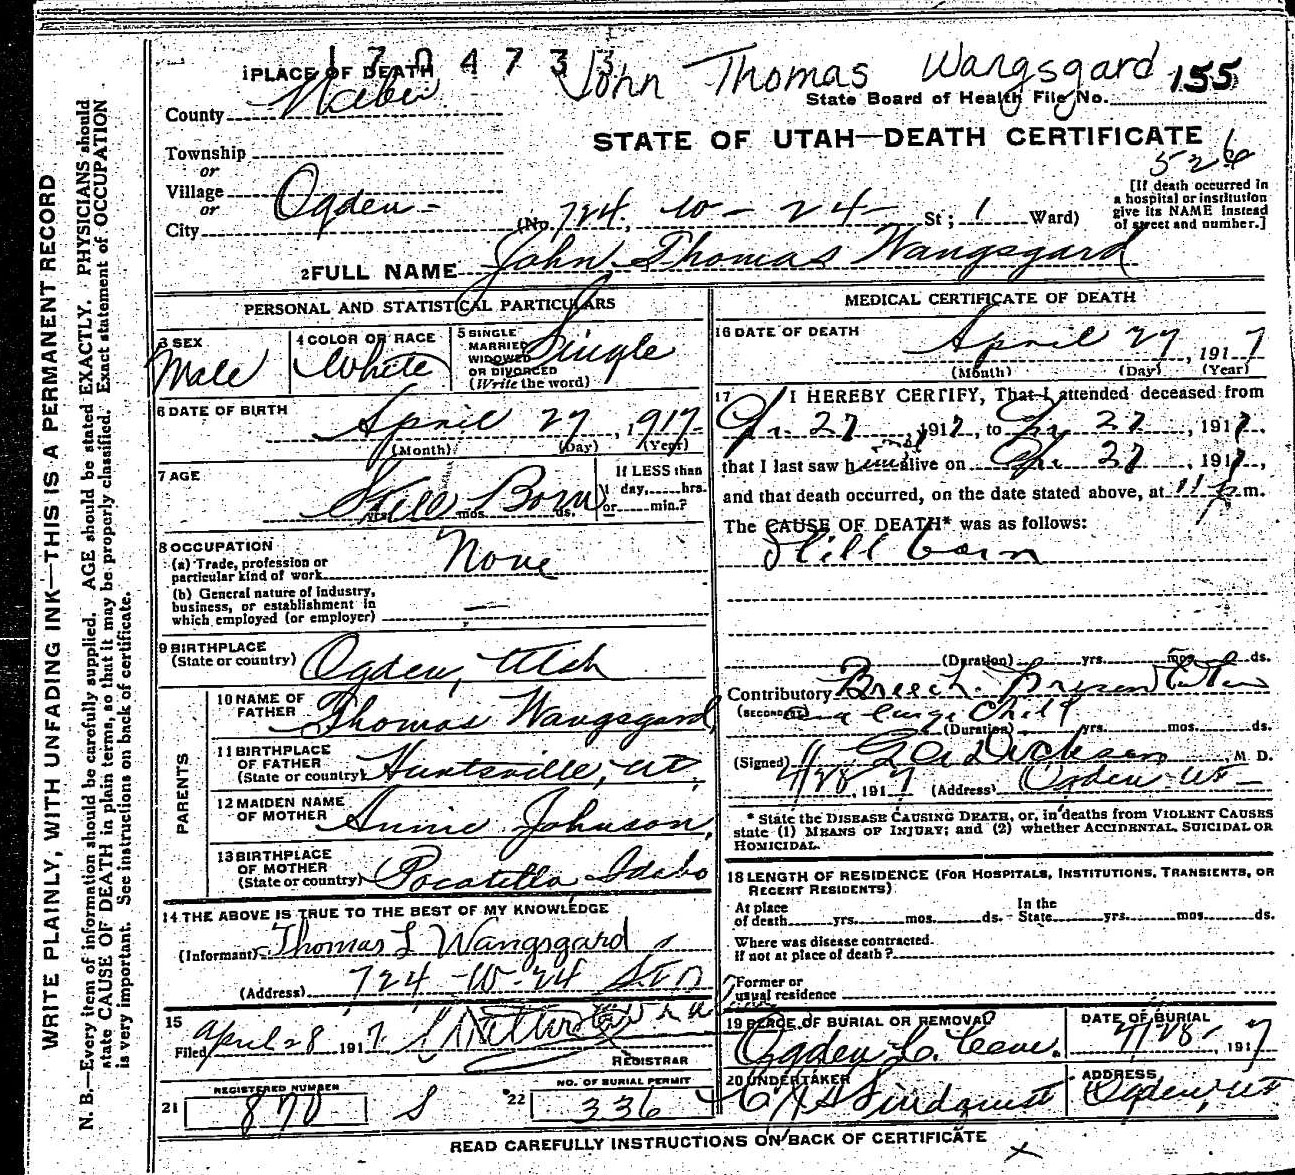 1704733
John Thomas Wangsgard 155
1 PLACE OF DEATH
State Board of Health File No.
County Weber
STATE OF UTAH—DEATH CERTIFICATE
Township
or
526
Village
or
City Ogden- (No. 724. W-24- St; 1 Ward)
[If death occurred in
a hospital or institution
give its NAME instead
of street and number.]
2 FULL NAME John Thomas Wangsgard
PERSONAL AND STATISTICAL PARTICULARS
3 SEX
Male
4 COLOR OR RACE
White
5 SINGLE
MARRIED
WIDOWED
OR DIVORCED
(Write the word)
Single
6 DATE OF BIRTH
April 27, 1917
(Month) (Day) (Year)
7 AGE
Still Born
yrs. mos. ds.
If LESS than
1 day, hrs.
or min.?
8 OCCUPATION
(a) Trade, profession or
particular kind of work
None
(b) General nature of industry,
business, or establishment in
which employed (or employer)
9 BIRTHPLACE
(State or country) Ogden, Utah
PARENTS
10 NAME OF
FATHER Thomas Wangsgard
11 BIRTHPLACE
OF FATHER
(State or country) Huntsville, Ut.
12 MAIDEN NAME
OF MOTHER Annie Johnson,
13 BIRTHPLACE
OF MOTHER
(State or country) Pocatello Idaho
14 THE ABOVE IS TRUE TO THE BEST OF MY KNOWLEDGE
(Informant) Thomas L Wangsgard
(Address) 724-W-24 St
15
Filed April 28 1917.
REGISTRAR
REGISTERED NUMBER
21 870 S
NO. OF BURIAL PERMIT
22 336
MEDICAL CERTIFICATE OF DEATH
16 DATE OF DEATH
April 27, 1917
(Month) (Day) (Year)
17 I HEREBY CERTIFY, That I attended deceased from
Ap. 27 1917, to Ap 27, 1917,
that I last saw him alive on Ap. 27, 1917,
and that death occurred, on the date stated above, at 11 p m.
The CAUSE OF DEATH* was as follows:
Still born
(Duration) yrs. mos. ds.
Contributory Breech Presentation
(SECONDARY) and large Child
(Duration) yrs. mos. ds.
(Signed) Dickson M D.
4/28, 1917 (Address) Ogden Ut
* State the DISEASE CAUSING DEATH, or, in deaths from VIOLENT CAUSES
state (1) MEANS OF INJURY; and (2) whether ACCIDENTAL, SUICIDAL OR
HOMICIDAL.
18 LENGTH OF RESIDENCE (FOR HOSPITALS, INSTITUTIONS, TRANSIENTS, OR
RECENT RESIDENTS)
At place
of death yrs. mos. ds.
In the
State yrs. mos. ds.
Where was disease contracted.
if not at place of death?
Former or
usual residence
19 PLACE OF BURIAL OR REMOVAL
Ogden
DATE OF BURIAL
4/28-, 1917
20 UNDERTAKER
Lindquist
ADDRESS
Ogden, Ut
READ CAREFULLY INSTRUCTIONS ON BACK OF CERTIFICATE
x
WRITE PLAINLY, WITH UNFADING INK—THIS IS A PERMANENT RECORD
N. B.—Every item of information should be carefully supplied. AGE should be stated EXACTLY. PHYSICIANS should
state CAUSE OF DEATH in plain terms, so that it may be properly classified. Exact statement of OCCUPATION
is very important. See instructions on back of certificate.